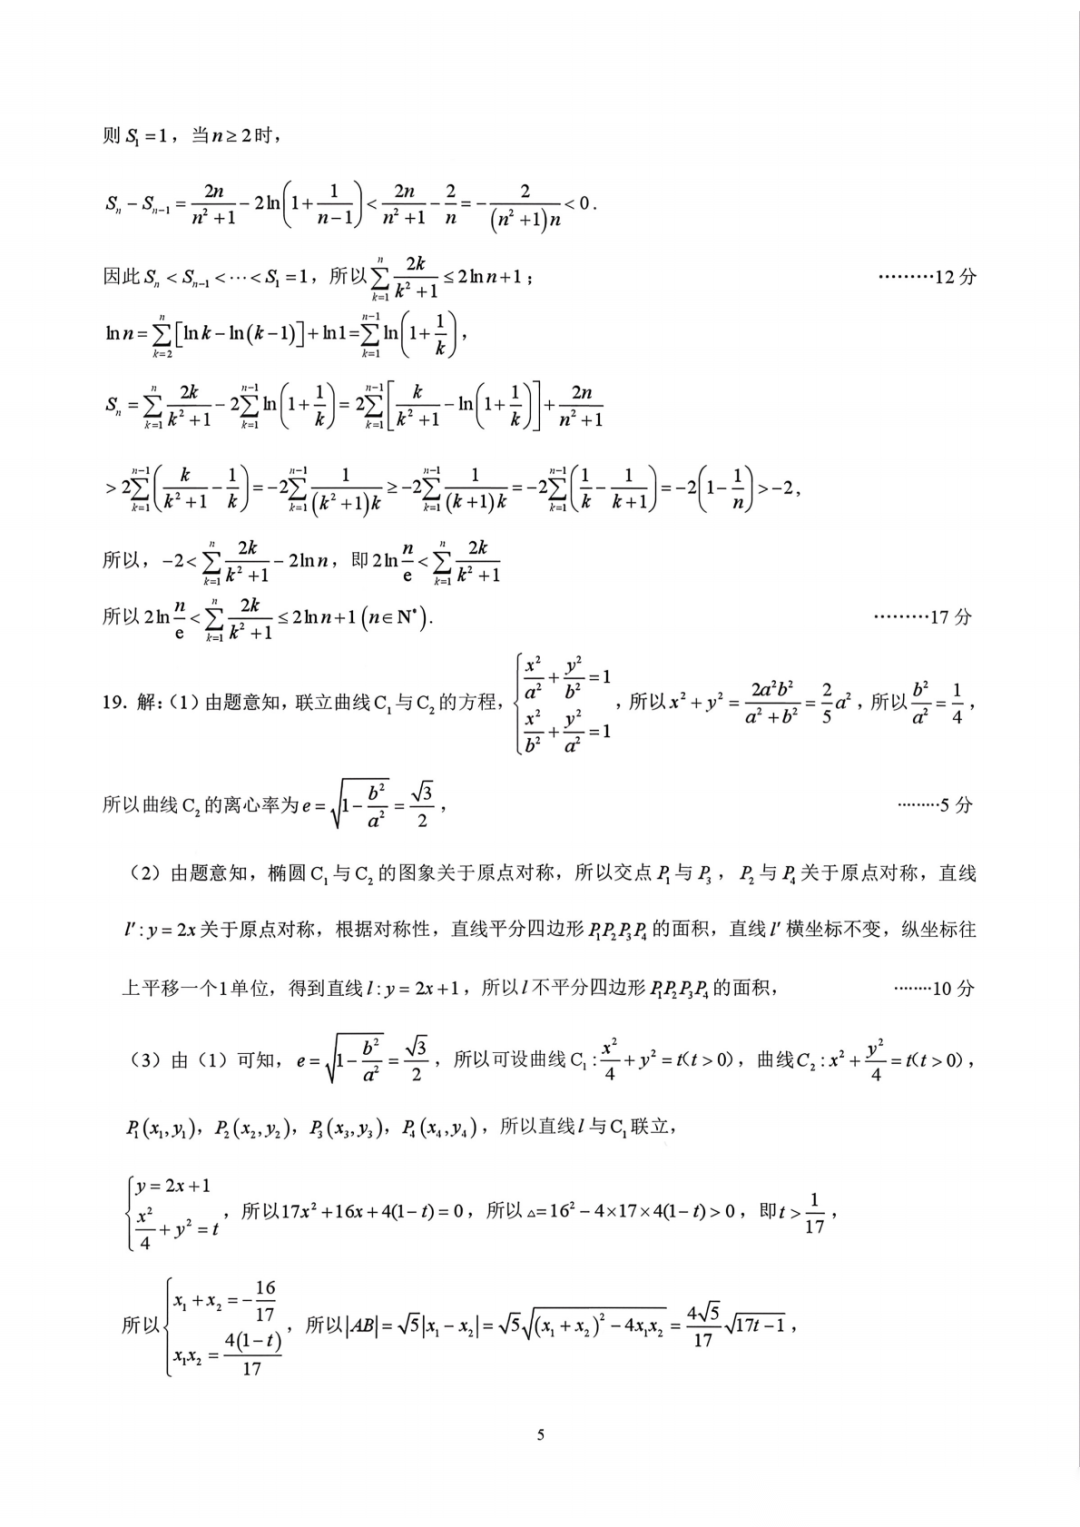 则 S₁ =1，当n≥2时，
Sₙ − Sₙ₋₁ = 2n/(n²+1) − 2ln(1+1/(n−1)) < 2n/(n²+1) − 2/n = −2/((n²+1)n) < 0.
因此 Sₙ < Sₙ₋₁ < ⋯ < S₁ =1，所以∑_{k=1}^{n} 2k/(k²+1) ≤ 2ln n+1； ·········12 分
ln n = ∑_{k=2}^{n} [ln k − ln(k−1)] + ln1 = ∑_{k=1}^{n−1} ln(1+1/k)，
Sₙ = ∑_{k=1}^{n} 2k/(k²+1) − 2∑_{k=1}^{n−1} ln(1+1/k) = 2∑_{k=1}^{n−1} [k/(k²+1) − ln(1+1/k)] + 2n/(n²+1)
> 2∑_{k=1}^{n−1} (k/(k²+1) − 1/k) = −2∑_{k=1}^{n−1} 1/((k²+1)k) ≥ −2∑_{k=1}^{n−1} 1/((k+1)k) = −2∑_{k=1}^{n−1} (1/k − 1/(k+1)) = −2(1−1/n) > −2，
所以，−2 < ∑_{k=1}^{n} 2k/(k²+1) − 2ln n，即 2ln n/e < ∑_{k=1}^{n} 2k/(k²+1)
所以 2ln n/e < ∑_{k=1}^{n} 2k/(k²+1) ≤ 2ln n+1 (n∈N*). ·········17 分
19. 解：（1）由题意知，联立曲线C₁与C₂的方程，{x²/a² + y²/b² =1, x²/b² + y²/a² =1，所以x² + y² = 2a²b²/(a²+b²) = 2/5 a²，所以 b²/a² = 1/4，
所以曲线C₂的离心率为e = √(1−b²/a²) = √3/2， ·········5 分
（2）由题意知，椭圆C₁与C₂的图象关于原点对称，所以交点P₁与P₃，P₂与P₄关于原点对称，直线
l′: y = 2x 关于原点对称，根据对称性，直线平分四边形P₁P₂P₃P₄的面积，直线l′横坐标不变，纵坐标往
上平移一个1单位，得到直线l: y = 2x+1，所以l不平分四边形P₁P₂P₃P₄的面积， ········10 分
（3）由（1）可知，e = √(1−b²/a²) = √3/2，所以可设曲线C₁: x²/4 + y² = t(t > 0)，曲线C₂: x² + y²/4 = t(t > 0)，
P₁(x₁,y₁)，P₂(x₂,y₂)，P₃(x₃,y₃)，P₄(x₄,y₄)，所以直线l与C₁联立，
{y = 2x+1, x²/4 + y² = t，所以17x² +16x + 4(1−t) = 0，所以△=16² − 4×17×4(1−t) > 0，即t > 1/17，
所以{x₁ + x₂ = −16/17, x₁x₂ = 4(1−t)/17，所以|AB| = √5|x₁ − x₂| = √5√((x₁ + x₂)² − 4x₁x₂) = 4√5/17 √(17t −1)，
5